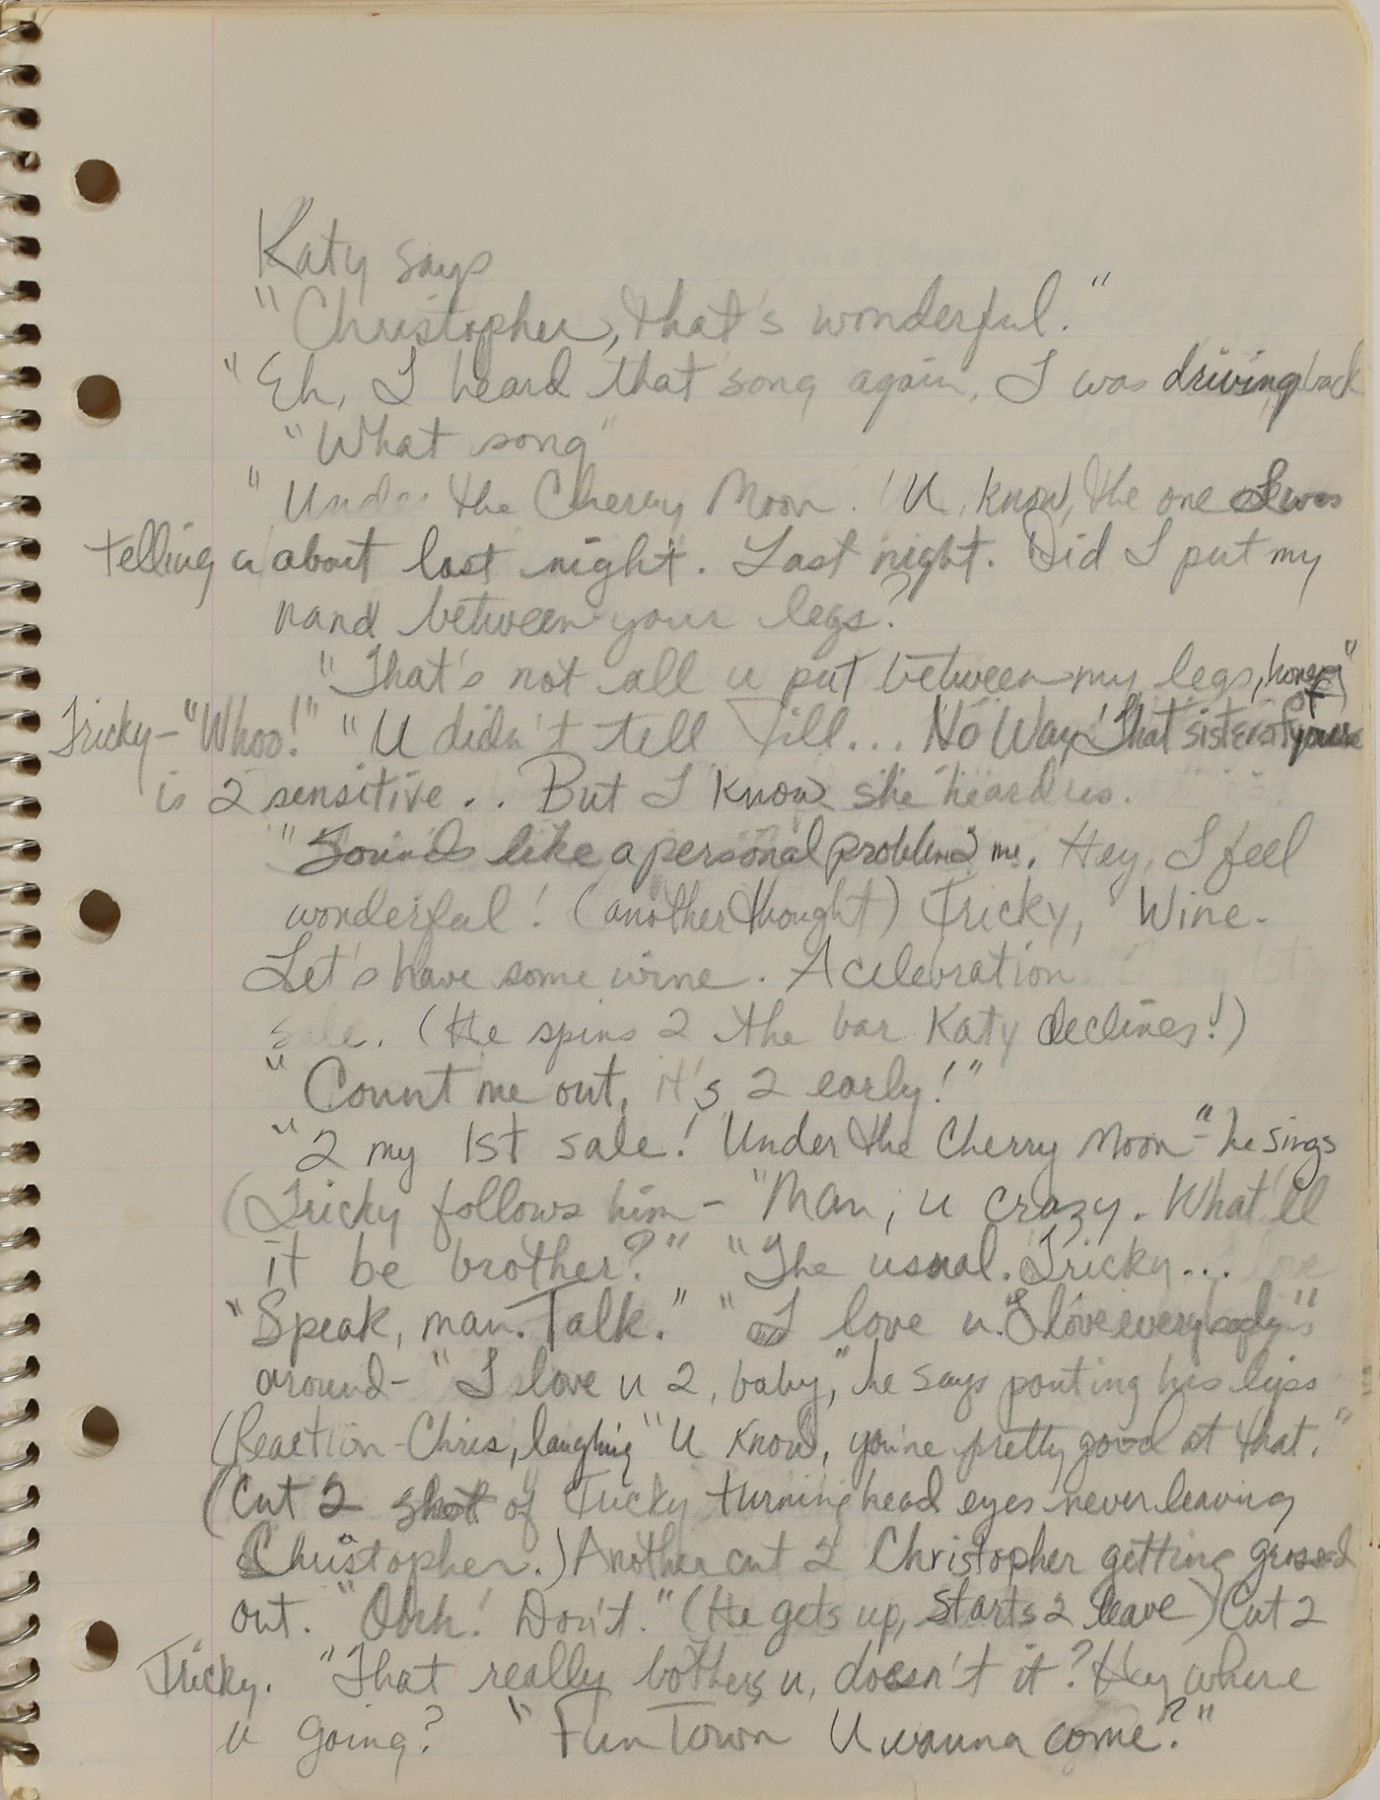 Katy says
"Christopher, that's wonderful."
"Eh, I heard that song again, I was driving back
"What song"
"Under the Cherry Moon. U know, the one I was
telling u about last night. Last night. Did I put my
hand between your legs?
"That's not all u put between my legs, honey"
Tricky - "Whoo!" "U didn't tell Jill... No Way! That sister of yours
is 2 sensitive.. But I know she heard us.
"Sounds like a personal problem 2 me. Hey, I feel
wonderful! (another thought) Tricky, Wine.
Let's have some wine. A celebration
sale. (He spins 2 the bar Katy declines!)
"Count me out, it's 2 early!"
"2 my 1st sale! Under the Cherry Moon" - he sings
(Tricky follows him - "Man, u crazy. What'll
it be brother?" "The usual. Tricky...
"Speak, man. Talk." "I love u." "I love everybody"
around - "I love u 2, baby," he says pouting his lips
(Reaction - Chris, laughing "U know, you're pretty good at that."
(Cut 2 shot of Tricky turning head eyes never leaving
Christopher.) Another cut 2 Christopher getting grossed
out. "Ohh! Don't." (He gets up, starts 2 leave) Cut 2
Tricky. "That really bothers u, doesn't it? Hey where
u going? "Fun Town U wanna come?"